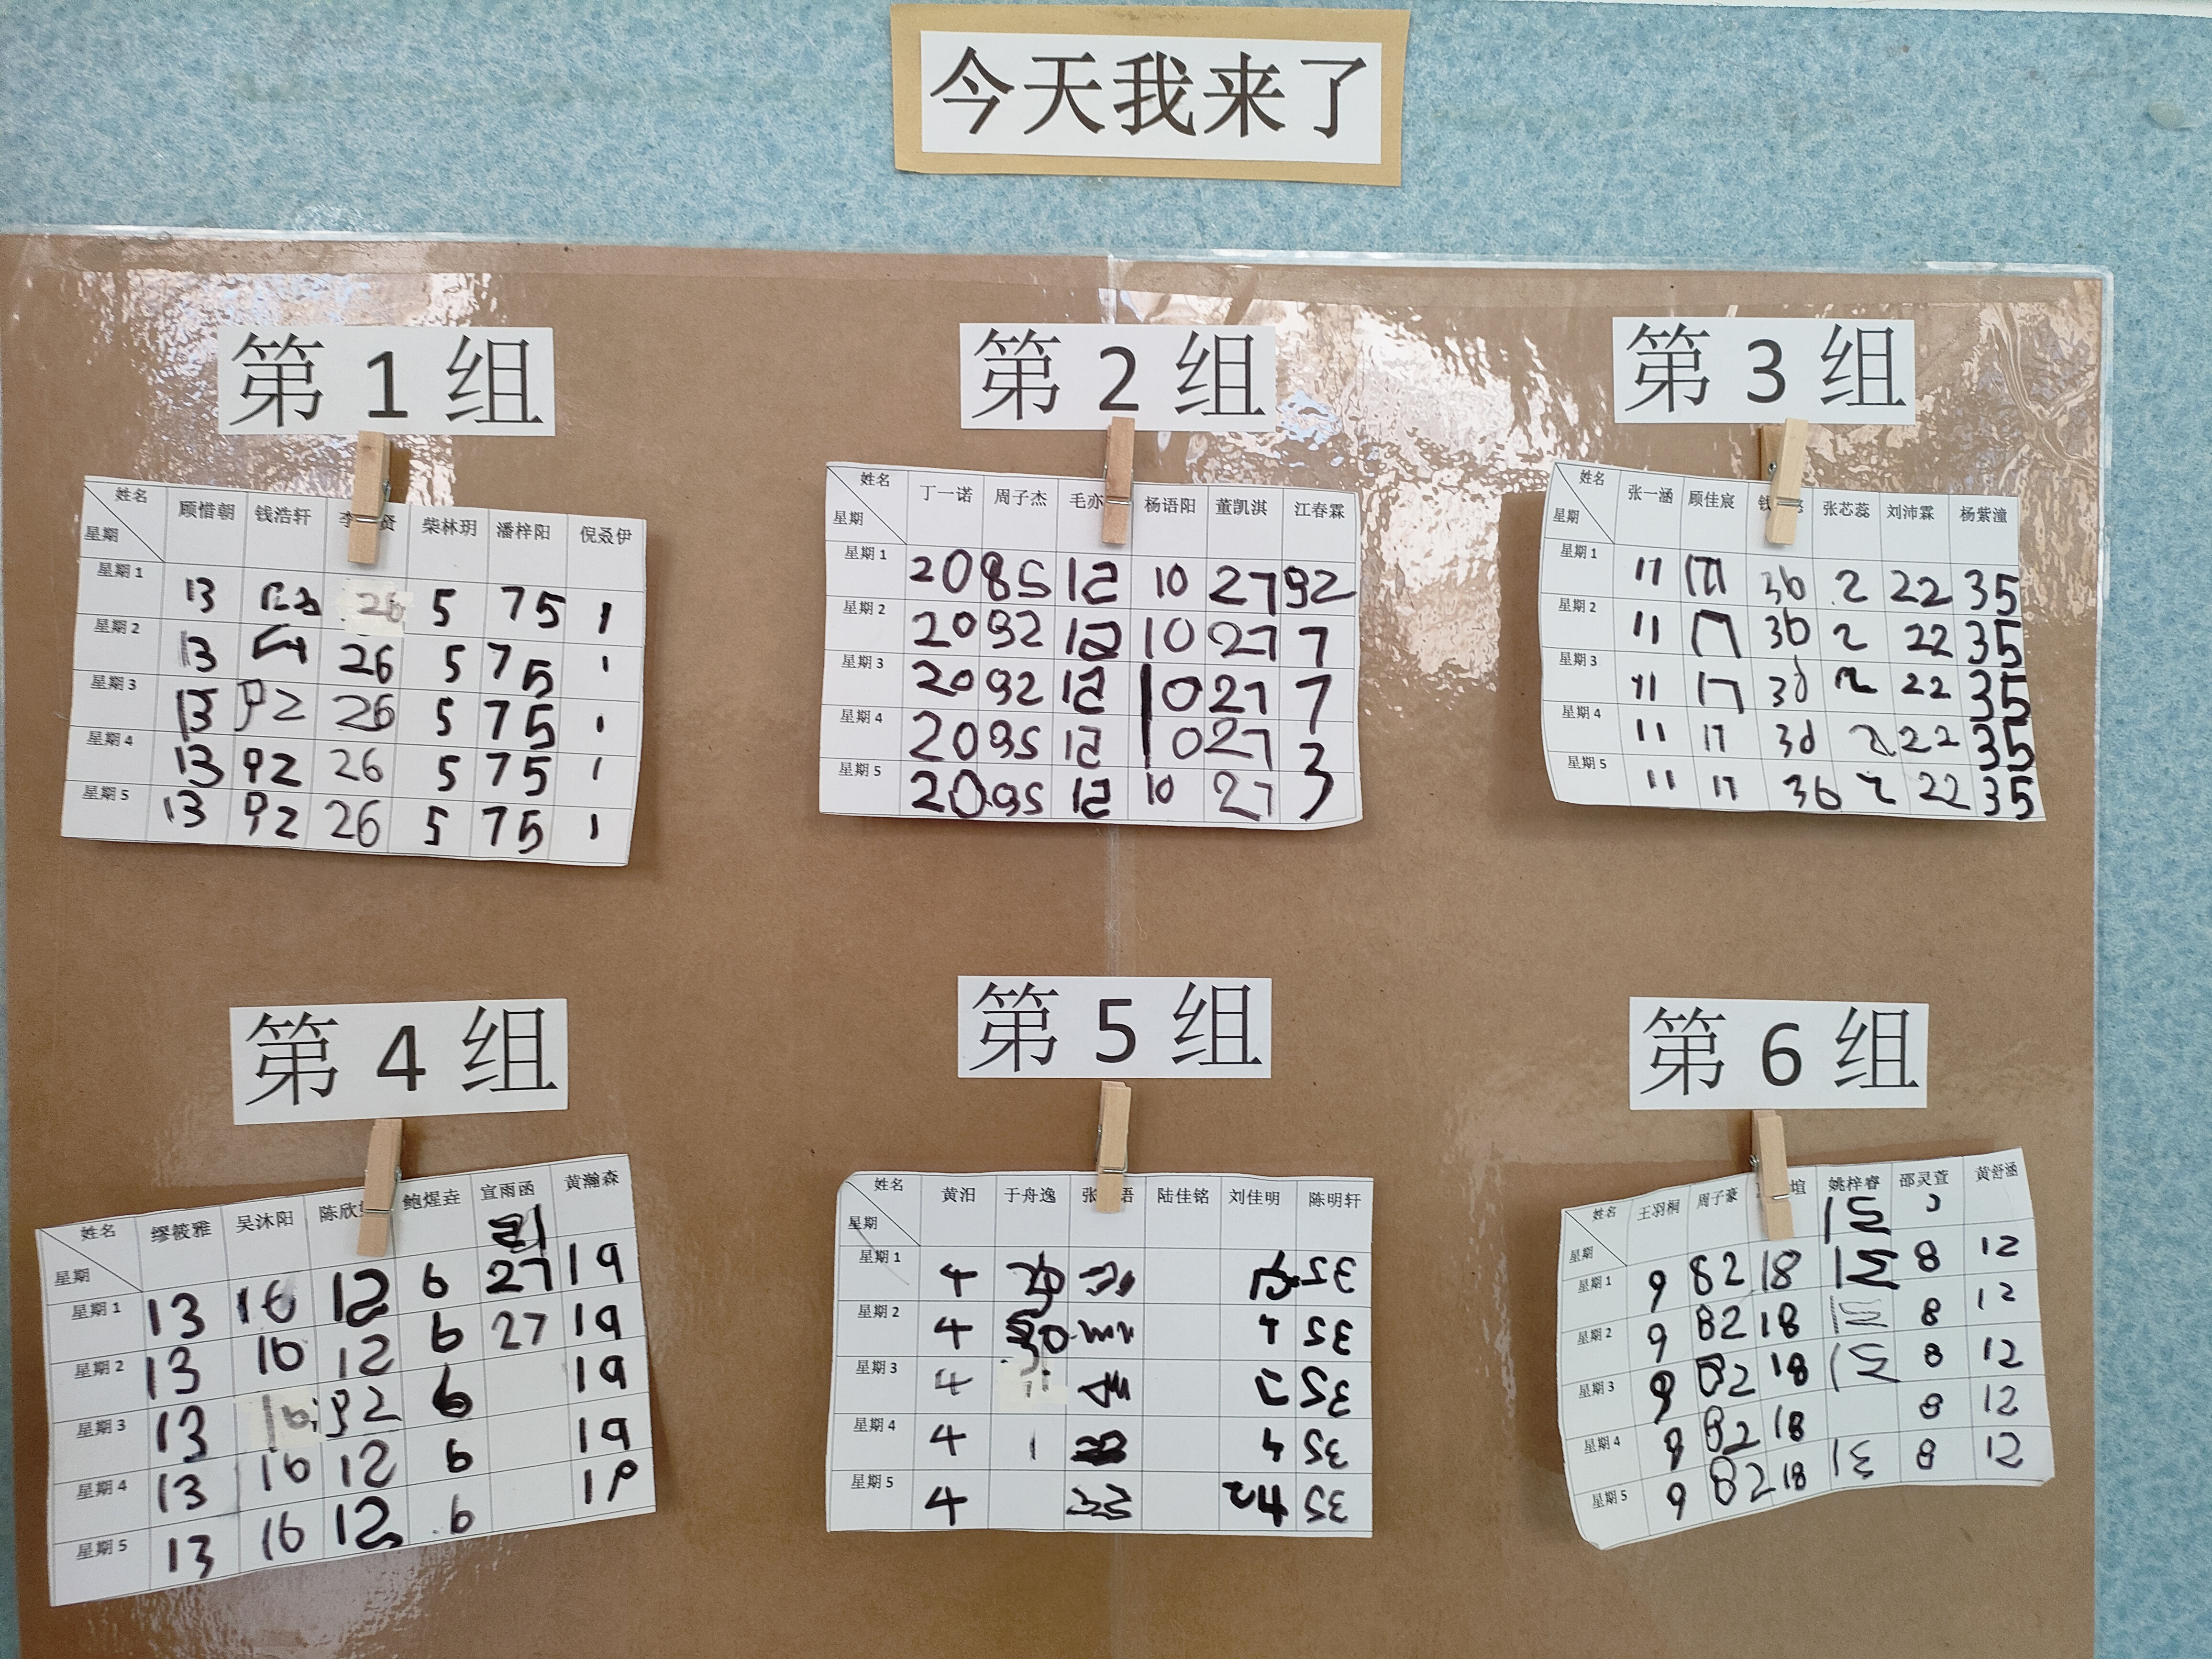 今天我来了
第 1 组
姓名 顾惜朝 钱浩轩 李 贤 柴林玥 潘梓阳 倪叒伊
星期
星期 1 13 26 5 75 1
星期 2 13 26 5 75 1
星期 3 13 92 26 5 75 1
星期 4 13 92 26 5 75 1
星期 5 13 92 26 5 75 1
第 2 组
姓名 丁一诺 周子杰 毛亦 杨语阳 董凯淇 江春霖
星期
星期 1 20 85 12 10 27 92
星期 2 20 92 12 10 27 7
星期 3 20 92 12 10 27 7
星期 4 20 95 12 10 27 3
星期 5 20 95 12 10 27
第 3 组
姓名 张一涵 顾佳宸 钱 张芯蕊 刘沛霖 杨紫潼
星期
星期 1 11 17 36 2 22 35
星期 2 11 17 36 2 22 35
星期 3 11 17 36 2 22 35
星期 4 11 17 36 2 22 35
星期 5 11 17 36 2 22 35
第 4 组
姓名 缪筱雅 吴沐阳 陈欣 鲍煋垚 宣雨函 黄瀚森
星期
星期 1 13 16 12 6 27 19
星期 2 13 16 12 6 27 19
星期 3 13 16 6 19
星期 4 13 16 12 6 19
星期 5 13 16 12 6 19
第 5 组
姓名 黄汩 于舟逸 张 语 陆佳铭 刘佳明 陈明轩
星期
星期 1 4 35
星期 2 4 4 35
星期 3 4 35
星期 4 4 1 4 35
星期 5 4 35
第 6 组
姓名 王羽桐 周子豪 萱 姚梓睿 邵灵萱 黄舒涵
星期
星期 1 9 82 18 15 8 12
星期 2 9 82 18 8 12
星期 3 9 82 18 15 8 12
星期 4 9 82 18 8 12
星期 5 9 82 18 13 8 12